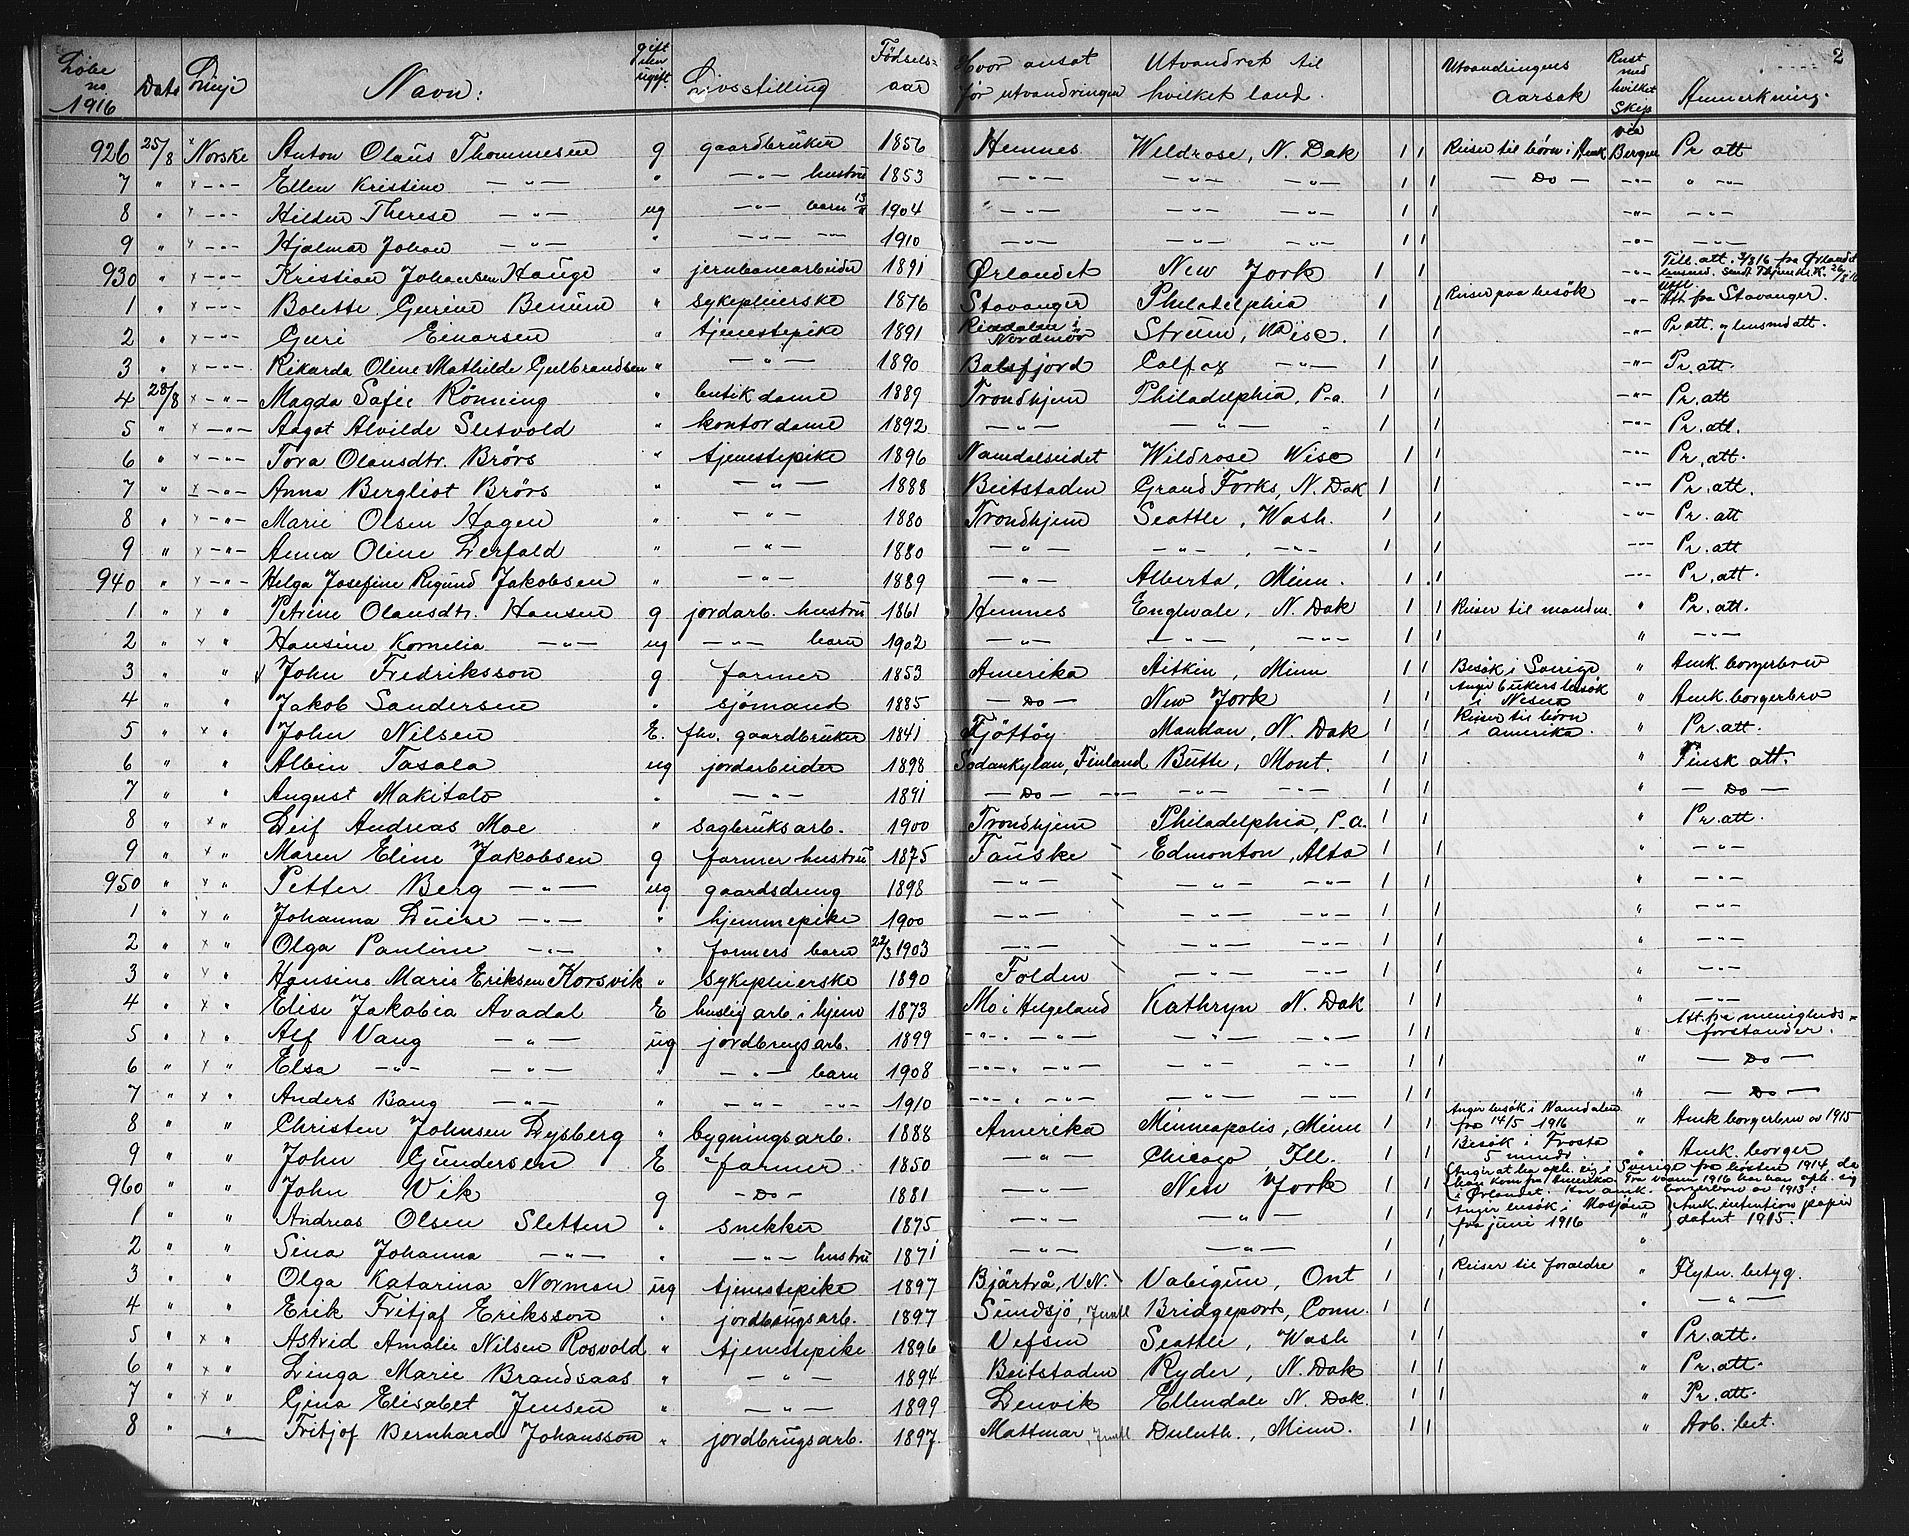 Löbe no. 1916 Dato Linje Navn: gift eller ugift. Livsstilling Födsels- aar Hvor ansat för utvandringen Utvandret til hvilket land. Utvandringens aarsak Reist med hvilket Skip Anmerkning. 2
926 25/8 x Norske Anton Olaus Thommesen g gaardbruker 1856 Hemnes Wildrose, N. Dak 1 1 Reiser til börn i Amk via Bergen Pr att
7 " x -"- Ellen Kristine -"- " -"- hustru 1853 -"- -"- -"- 1 1 - Do - -"- " -"-
8 " x -"- Hildur Therese -"- ug -"- barn 1904 -"- -"- -"- 1 1 -"- -"-
9 " x -"- Hjalmar Johan -"- " -"- -"- 1910 -"- -"- -"- 1 1 -"- -"-
930 " x -"- Kristian Johansen Hauge " jernbanearbeider 1891 Ørlandet New York 1 1 -"- Till. att. 3/8 16 fra Ørlandet
1 " x -"- Bolette Gurine Benum " sykepleierske 1876 Stavanger Philadelphia 1 1 Reiser paa besök -"- Att. fra Stavanger.
2 " x -"- Guri Einarsen " tjenestepike 1891 Rindalen i Nordmör Strum, Wisc. 1 1 -"- Pr att. og lensmd att.
3 " x -"- Rikarda Oline Mathilde Gulbrandsen " -"- 1890 Balsfjord Colfax -"- 1 1 -"- Pr. att.
4 28/8 x -"- Magda Sofie Rönning " butikdame 1889 Trondhjem Philadelphia, Pa. 1 1 -"- Pr. att
5 " x -"- Aagot Alvilde Slesvold " kontordame 1892 -"- -"- " 1 1 -"- Pr. att.
6 " x -"- Tora Olausdtr. Brörs " tjenestepike 1896 Namdalseidet Wildrose Wisc 1 1 -"- Pr. att.
7 " x -"- Anna Bergliot Brörs " -"- 1888 Beitstaden Grand Forks, N. Dak 1 1 -"- Pr. att.
8 " x -"- Marie Olsen Hagen " -"- 1880 Trondhjem Seattle, Wash. 1 1 -"- Pr. att
9 " x -"- Anna Oline Lerfald " -"- 1880 -"- -"-, -"- 1 1 -"- Pr. att
940 " x -"- Helga Josefine Regund Jakobsen " -"- 1889 -"- Alberta, Minn. 1 1 -"- Pr. att.
1 " x " Petrine Olausdtr. Hansen g jordarb. hustru 1861 Hemnes Englevale, N. Dak 1 1 Reiser til manden. " Pr. att.
2 " x " Hansine Kornelia -"- ug -"- barn 1902 -"- -"-, -"- 1 1 " -"-
3 " " John Fredriksson g farmer 1853 Amerika Aitkin, Minn 1 1 Besök i Sverige " Amk. borgerbrev
4 " " Jakob Sandersen " sjömand 1885 - Do - New York 1 1 Angir 6 ukers besök i Nesna " Amk borgerbrev
5 " x " John Nilsen E. fhv. gaardbruker 1841 Tjöttöy Mandan, N. Dak 1 1 Reiser til börn i Amerika. " Pr. att.
6 " " Albin Tasala ug jordarbeider 1898 Sodankylan, Finland Butte, Mont. 1 1 " Finsk att.
7 " " August Makitalo " -"- 1891 - Do - -"- -"- -"- 1 1 " - Do -
8 " x " Leif Andreas Moe " sagbruksarb. 1900 Trondhjem Philadelphia, Pa. 1 1 " Pr. att.
9 " x " Maren Eline Jakobsen g farmer hustru 1875 Fauske Edmonton, Alta 1 1 " -"-
950 " x " Petter Berg -"- ug gaardsdreng 1898 -"- -"- -"- 1 1 " -"-
1 " x " Johanna Luise -"- " hjemmepike 1900 -"- -"- -"- 1 1 " -"-
2 " x " Olga Pauline -"- " farmers barn 22/3 1903 -"- -"- -"- 1 1 " -"-
3 " x " Hansine Marie Eriksen Korsvik " sykepleierske 1890 Folden -"- -"- 1 1 " -"-
4 " x " Elise Jakobia Avadal E huslig arb. i hjem 1873 Mo i Helgeland Kathryn N. Dak 1 1 " -"-
5 " x " Alf Vang -"- ug jordbrugsarb. 1899 -"- -"- -"- -"- 1 1 " Att. fra menigheds-forstander.
6 " x " Elsa -"- -"- " -"- barn 1908 -"- -"- -"- -"- 1 1 " - Do -
7 " x " Anders Bang -"- " -"- -"- 1910 -"- -"- -"- -"- 1 1 " - Do -
8 " " Christen Johnsen Lysberg " bygningsarb. 1888 Amerika Minneapolis, Minn 1 1 Angir besök i Namdalen fra 14/5 1916 " Amk borgerbrev av 1915
9 " " John Gundersen E farmer 1850 -"- Chicago Ill. 1 1 Besök i Frosta 5 mndr. " Amk. borger
960 " " John Vik g - Do - 1881 -"- New York 1 1 Angir at ha oph. sig i Sverige fra hösten 1914, da han kom fra Amerika. Fra vaaren 1916 har han oph. sig i Ørlandet. Har amk. borgerbrev av 1913.
1 " " Andreas Olsen Sletten " snekker 1875 -"- -"- 1 1 Angir besök i Mosjöen fra juni 1916 " Amk. intention papir datert 1915.
2 " " Sina Johanna -"- " -"- hustru 1871 -"- -"- 1 1 "
3 " " Olga Katarina Norman ug tjenestepike 1897 Bjärtrå, V.N. Vabigun, Ont 1 1 Reiser til foraldre " Flyttn. betyg.
4 " " Erik Fritjof Eriksson " jordbrugsarb. 1897 Sundsjö, Jemtl Bridgeport, Conn. 1 1 " -"-
5 " x " Astrid Amalie Nilsen Rosvold " tjenestepike 1896 Vefsen Seattle, Wash 1 1 " Pr. att.
6 " x " Linga Marie Brandsaas " -"- 1894 Beitstaden Ryder, N. Dak 1 1 " Pr. att.
7 " x " Gina Elisabet Jensen " -"- 1899 Lenvik Ellendale N. Dak. 1 1 " Pr. att.
8 " " Fritjof Bernhard Johansson " jordbrugsarb. 1897. Mattmar, Jemtl Duluth., Minn. 1 1 " Arb. bet.